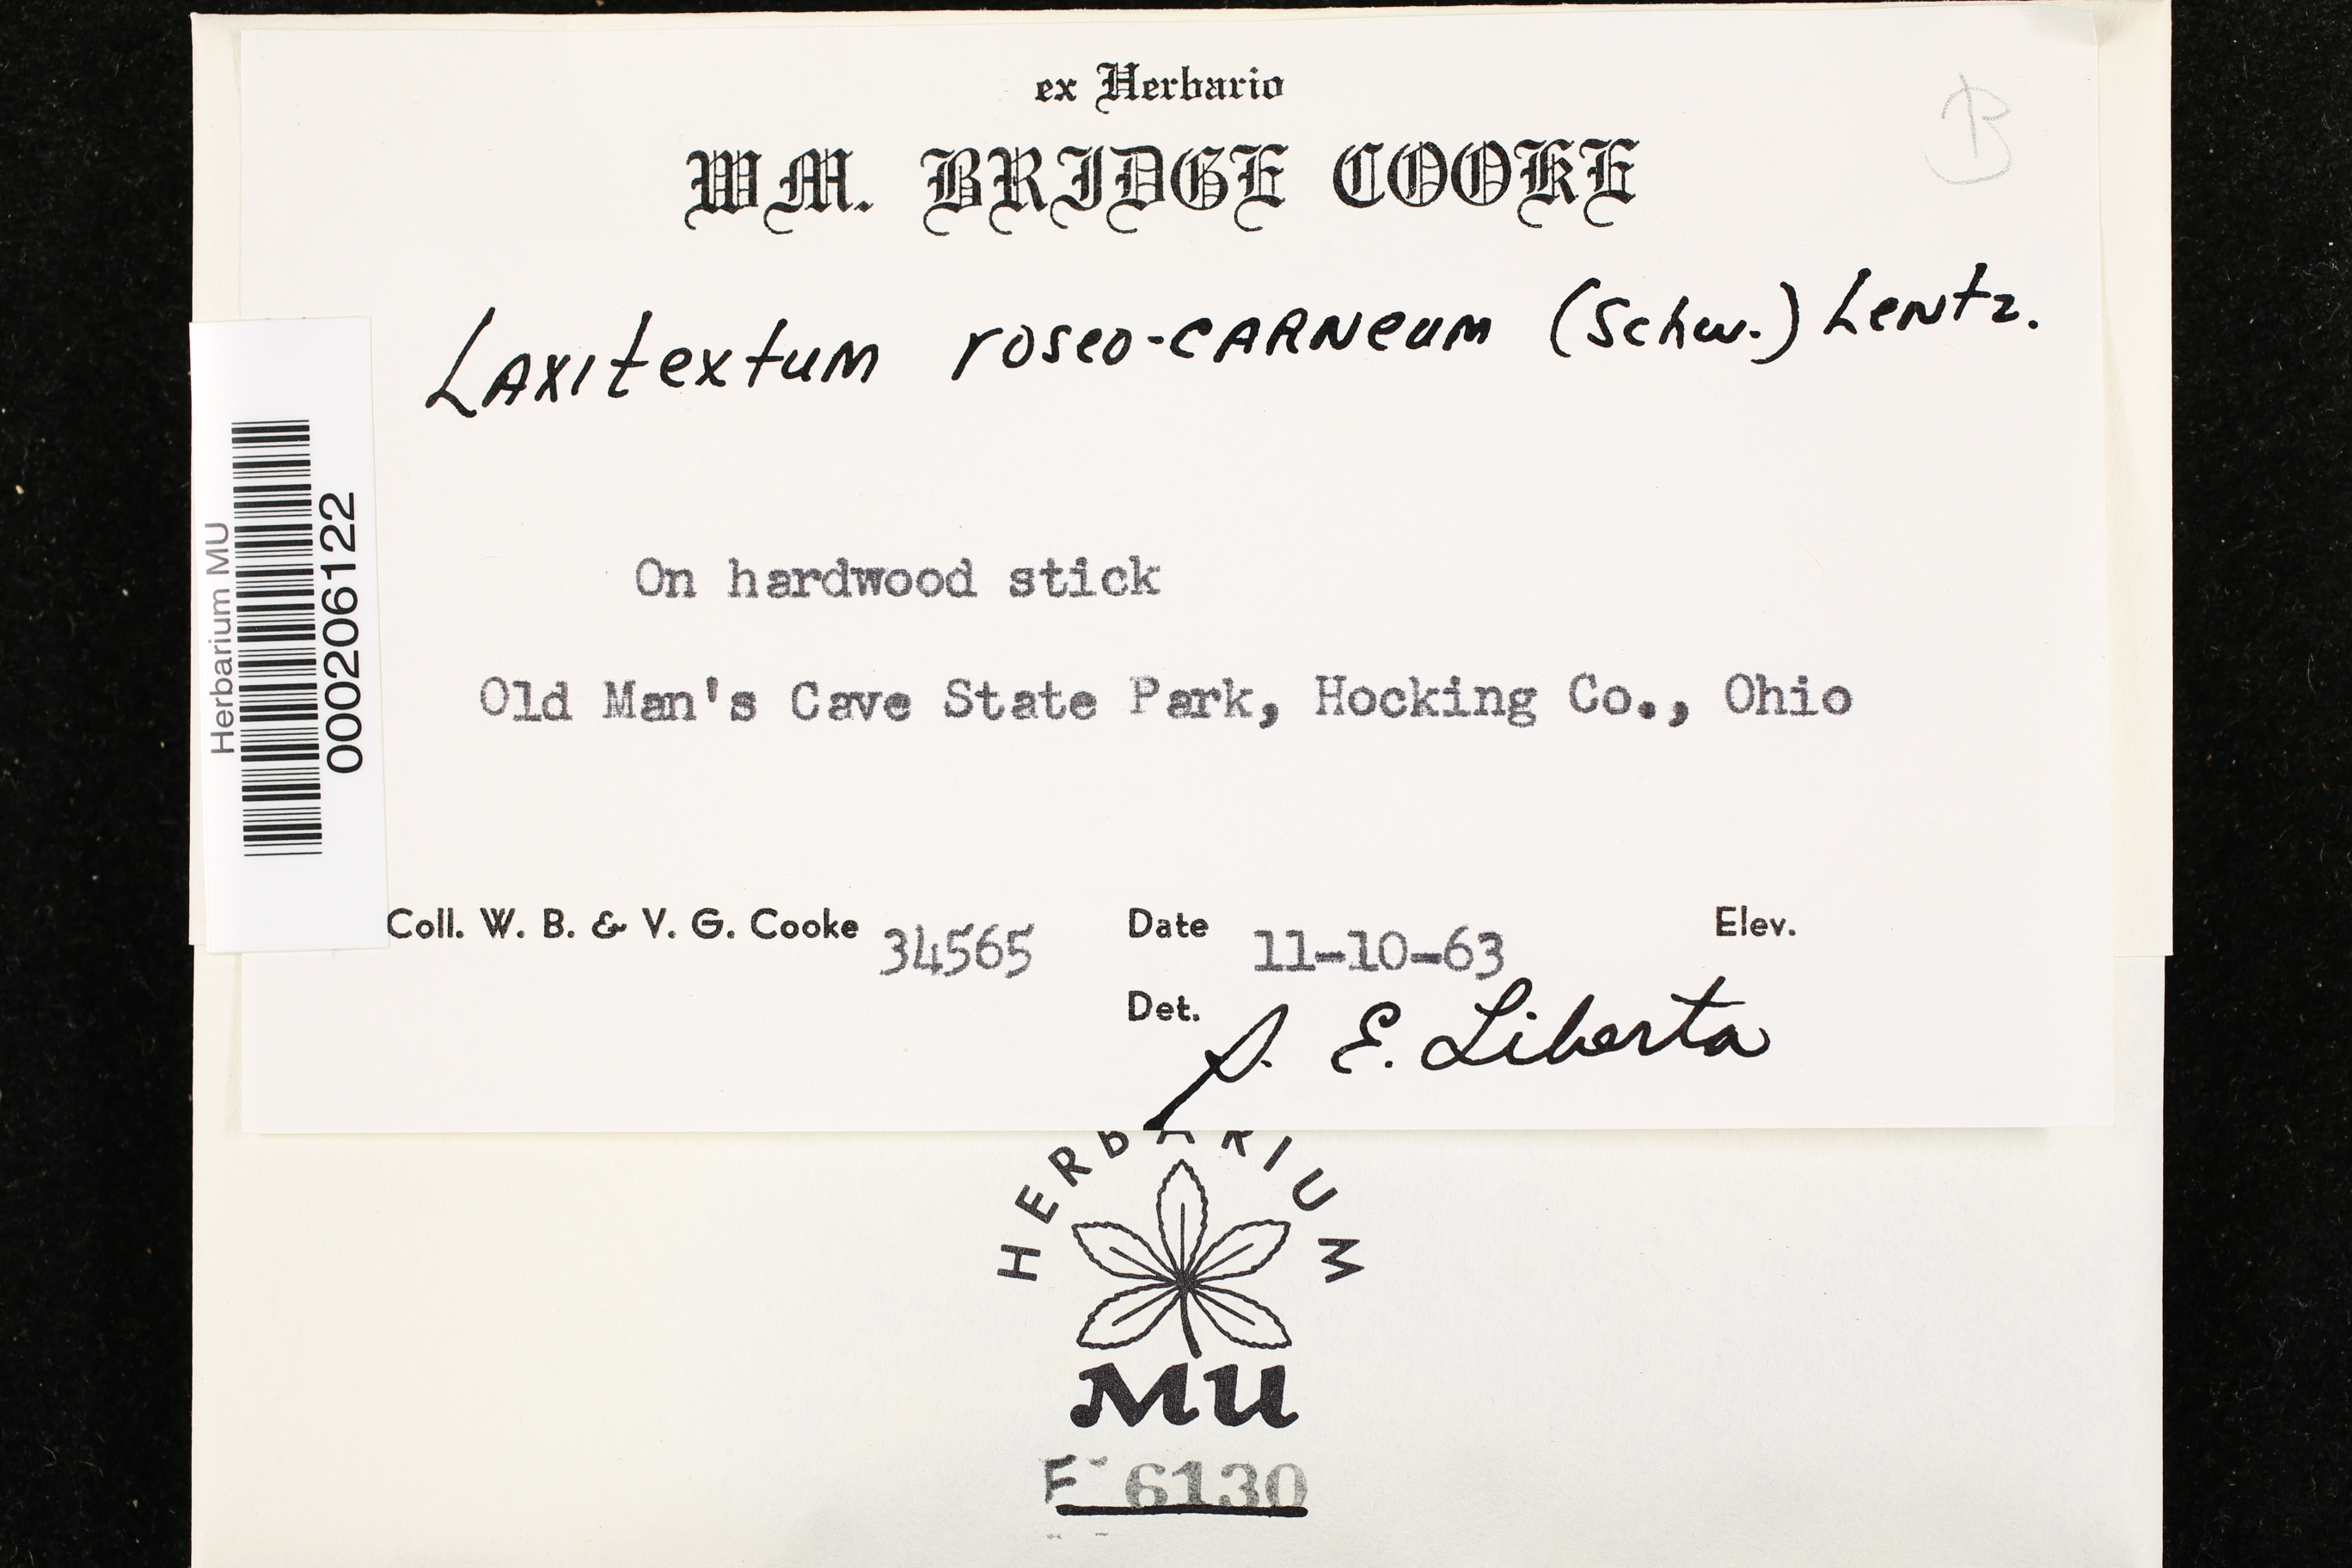 ex Herbario
WM. BRIDGE COOKE
B
Laxitextum roseo-carneum (Schw.) Lentz.
On hardwood stick
Old Man's Cave State Park, Hocking Co., Ohio
Coll. W. B. & V. G. Cooke 34565 Date 11-10-63 Elev.
Det. A. E. Liberta
Herbarium MU
000206122
HERBARIUM
MU
F 6130